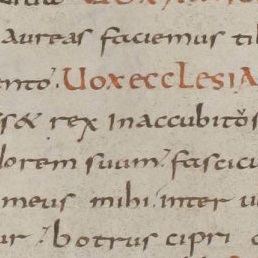 aureas faciemus ti
ento. Uox ecclesia
s& rex Inaccubitos
lorem suum. fascicu
meus mihi. inter u
ur. botrus cipri